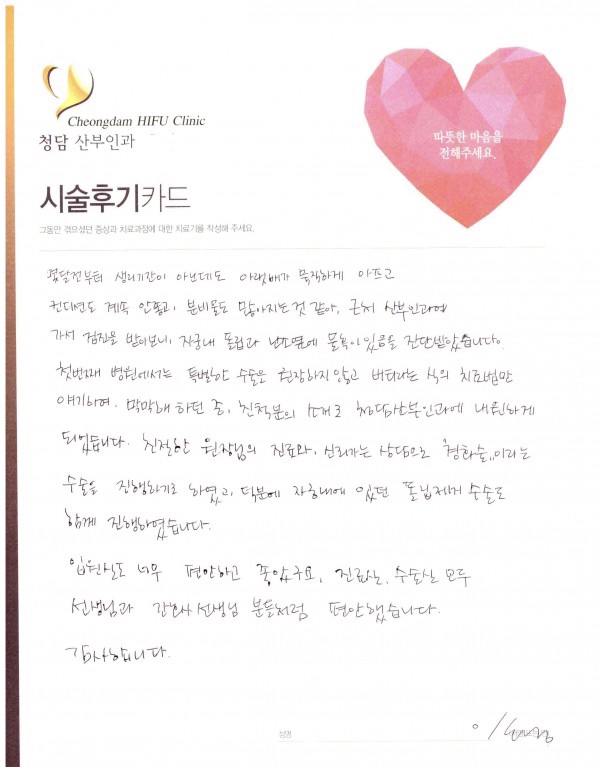 Cheongdam HIFU Clinic
청담 산부인과
따뜻한 마음을
전해주세요.
시술후기카드
그동안 겪으셨던 증상과 치료과정에 대한 치료기를 작성해 주세요.
몇달전부터 생리기간이 아닌데도 아랫배가 묵직하게 아프고
컨디션도 계속 안좋고, 분비물도 많아지는것 같아, 근처 산부인과에
가서 검진을 받아보니 자궁내 폴립과 난소옆에 물혹이 있음을 진단받았습니다.
첫번째 병원에서는 특별한 수술을 권장하지 않고 버티라는 식의 치료법만
얘기하여. 막막해 하던 중, 친척분의 소개로 청담산부인과에 내원하게
되었습니다. 친절한 원장님의 진료와, 신뢰가는 상담으로 "경화술"이라는
수술을 진행하기로 하였고, 덕분에 자궁내에 있던 폴립제거 수술도
함께 진행하였습니다.
입원실도 너무 편안하고 좋았구요, 진료실, 수술실 모두
선생님과 간호사 선생님 분들처럼 편안했습니다.
감사합니다.
성명